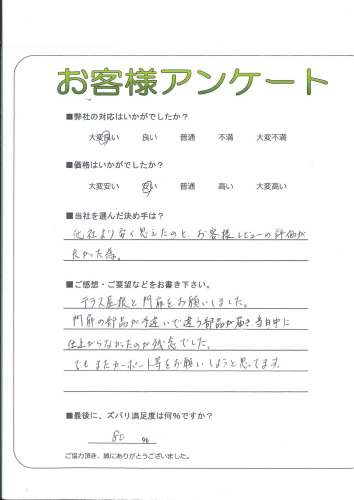 お客様アンケート
■弊社の対応はいかがでしたか？
大変良い 良い 普通 不満 大変不満
■価格はいかがでしたか？
大変安い 安い 普通 高い 大変高い
■当社を選んだ決め手は？
他社より安く思えたのと、お客様レビューの評価が
良かった為。
■ご感想・ご要望などをお書き下さい。
テラス屋根と門扉をお願いしました。
門扉の部品が手違いで違う部品が届き当日中に
仕上がらなかったのが残念でした。
でもまたカーポート等をお願いしようと思ってます。
■最後に、ズバリ満足度は何％ですか？
80 ％
ご協力頂き、誠にありがとうございました。